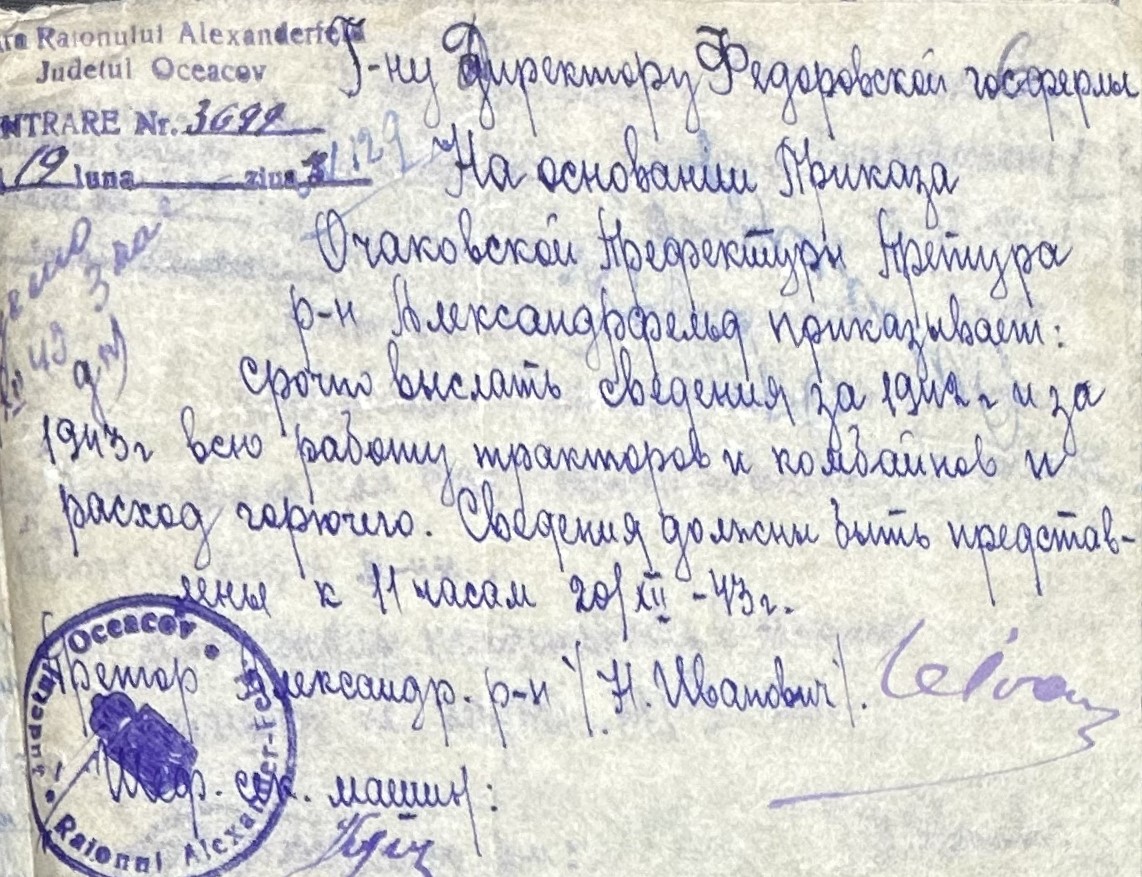 Raionului Alexanderfeld
Judetul Oceacov
NTRARE Nr. 3699
19 luna ziua
Г-ну Директору Федоровской госфермы
На основании Приказа
Очаковской Префектуры Претура
р-н Александрфельд приказывает:
срочно выслать сведения за 1942 г и за
1943 г всю работу тракторов и комбайнов и
расход горючего. Сведения должны быть представ-
лены к 11 часам 20/XII -43 г.
Претор Александр. р-н /Н. Иванович/.
Шеф. сек. машин:
Judetul Oceacov
Raionul Alexander-Feld